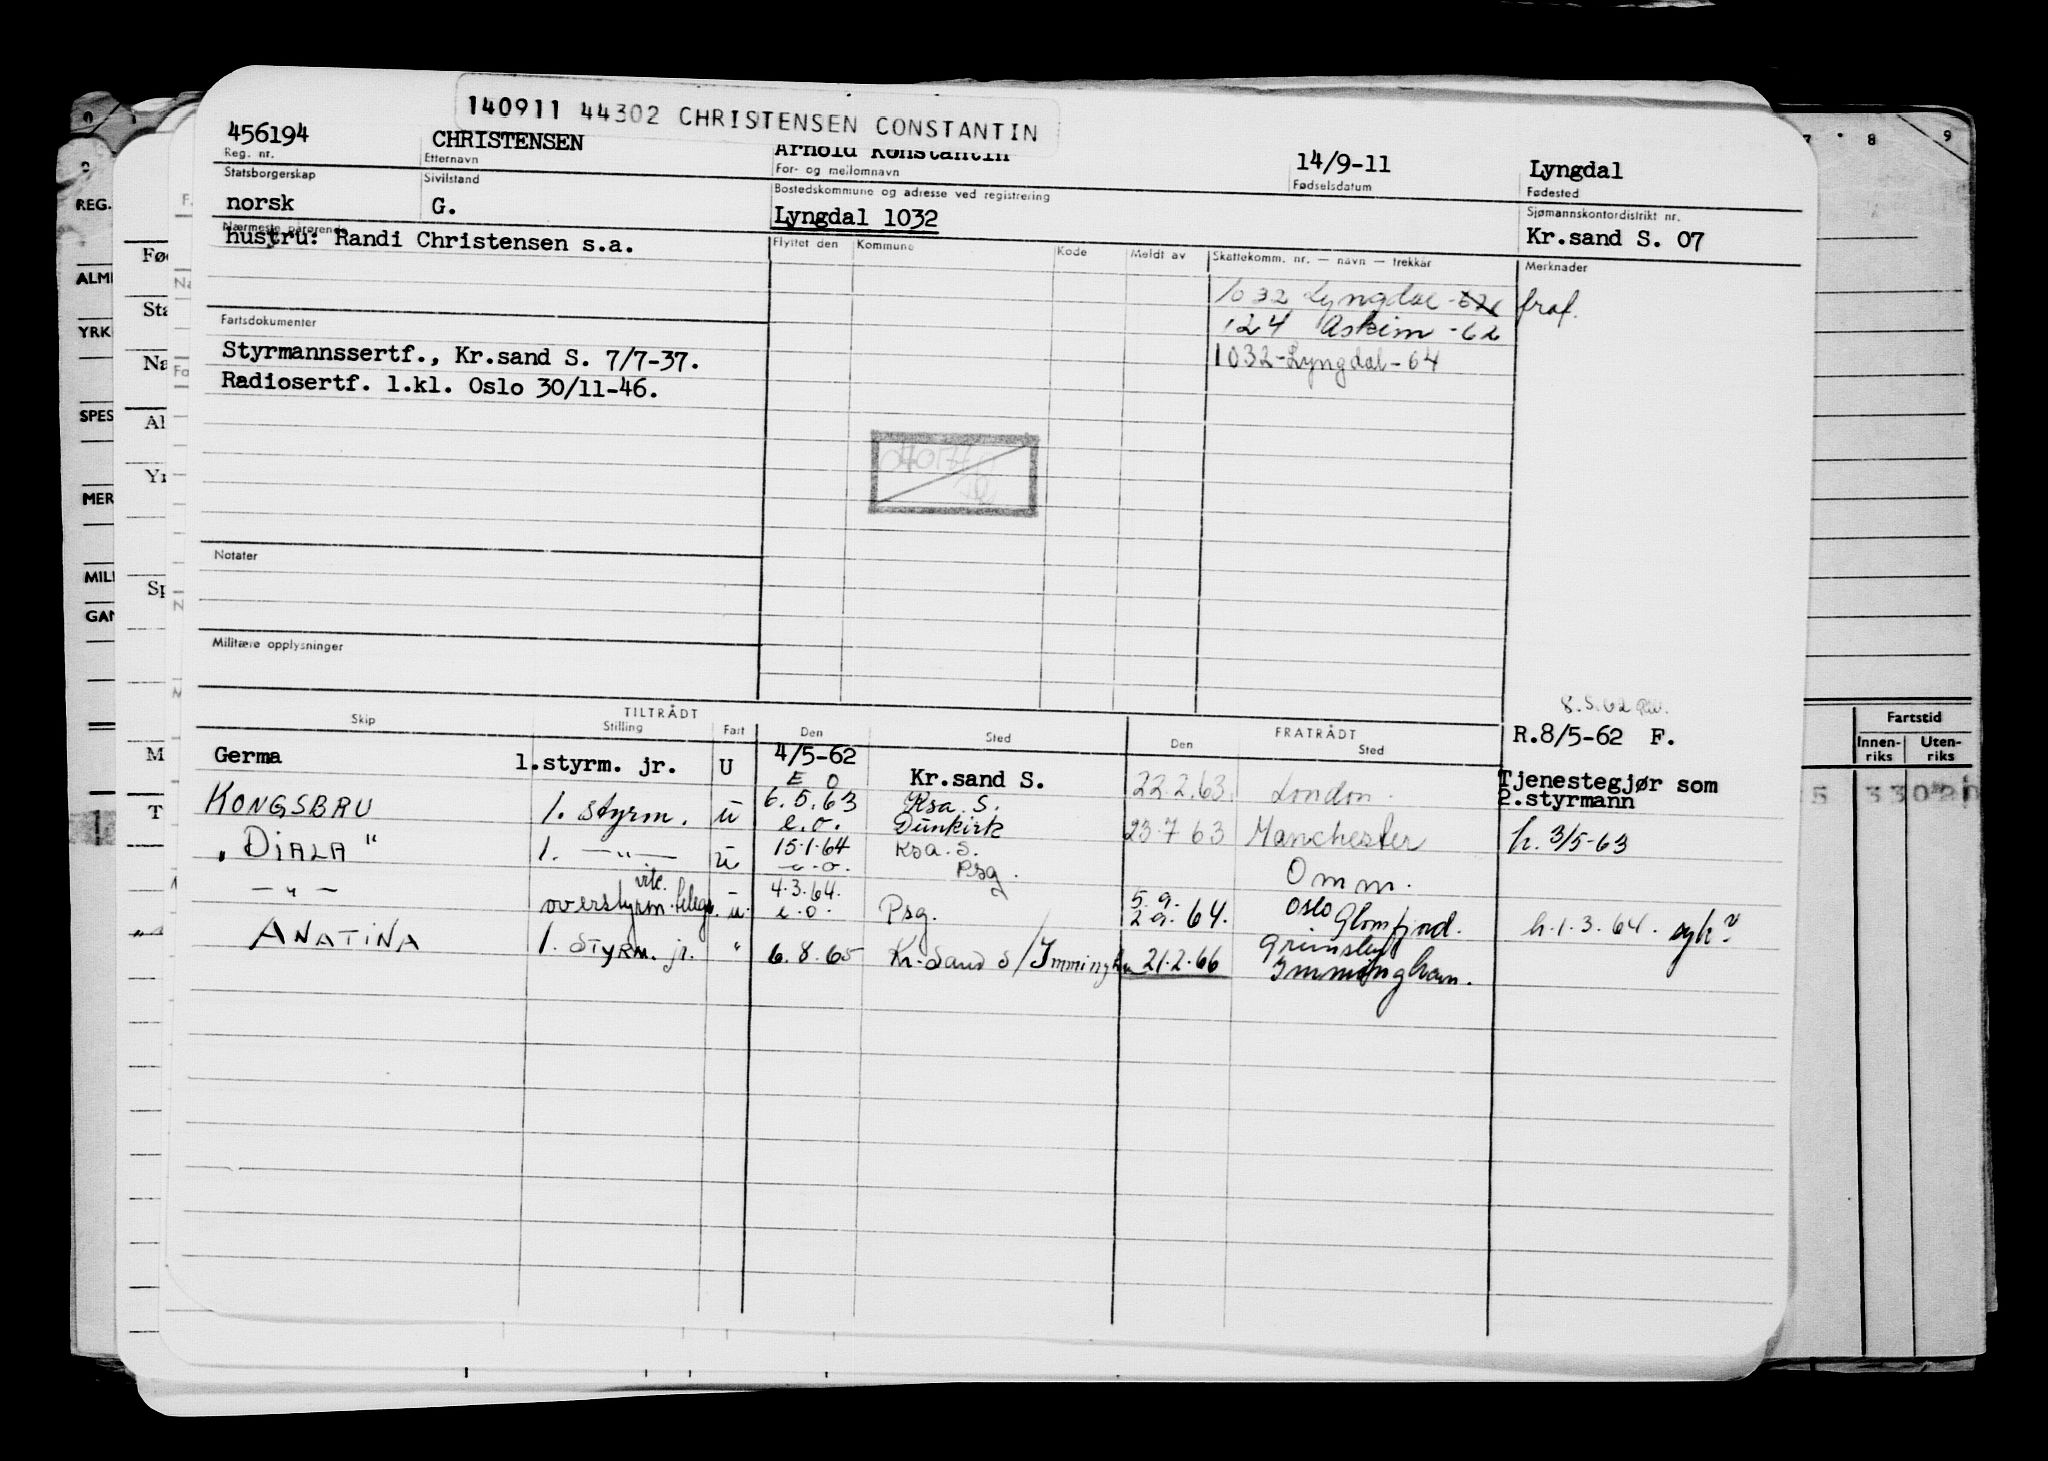 140911 44302 CHRISTENSEN CONSTANTIN
456194 CHRISTENSEN Arnold Konstantin 14/9-11 Lyngdal
Reg. nr. Etternavn For- og mellomnavn Fødselsdatum Fødested
Statsborgerskap Sivilstand Bostedskommune og adresse ved registrering Sjømannskontordistrikt nr.
norsk G. Lyngdal 1032 Kr.sand S. 07
Nærmeste pårørende
hustru: Randi Christensen s.a.
Flyttet den Kommune Kode Meldt av Skattekomm. nr. — navn — trekkår Merknader
1032 Lyngdal -62 fraf.
124 Askim -62
1032-Lyngdal-64
Fartsdokumenter
Styrmannssertf., Kr.sand S. 7/7-37.
Radiosertf. 1.kl. Oslo 30/11-46.
Notater
Militære opplysninger
8.5.62
TILTRÅDT FRATRÅDT
Skip Stilling Fart Den Sted Den Sted
R.8/5-62 F.
Germa 1.styrm. jr. U 4/5-62 Kr.sand S. 22.2.63. London. Tjenestegjør som
2.styrmann
E O
KONGSBRU 1. styrm. u 6.5.63 Ksa. S. 23.7 63 Manchester h. 3/5-63
e.o. Dunkirk
"DIALA" 1. —"— u 15.1.64 Ksa. S. Omm.
e.o. Psg.
—"— overstyrm. u. 4.3.64. Psg. 5.9. Oslo h.1.3.64. syk?
e.o. 2.9.64. Glomfjord.
ANATINA 1. STYRM. jr. " 6.8.65 Kr.Sand S/Immingham 21.2.66 Grimsby
Immingham.
REG.
ALM
YRK
SPES
MER
MILI
GAN
Fartstid
Innen-riks Uten-riks
8 9